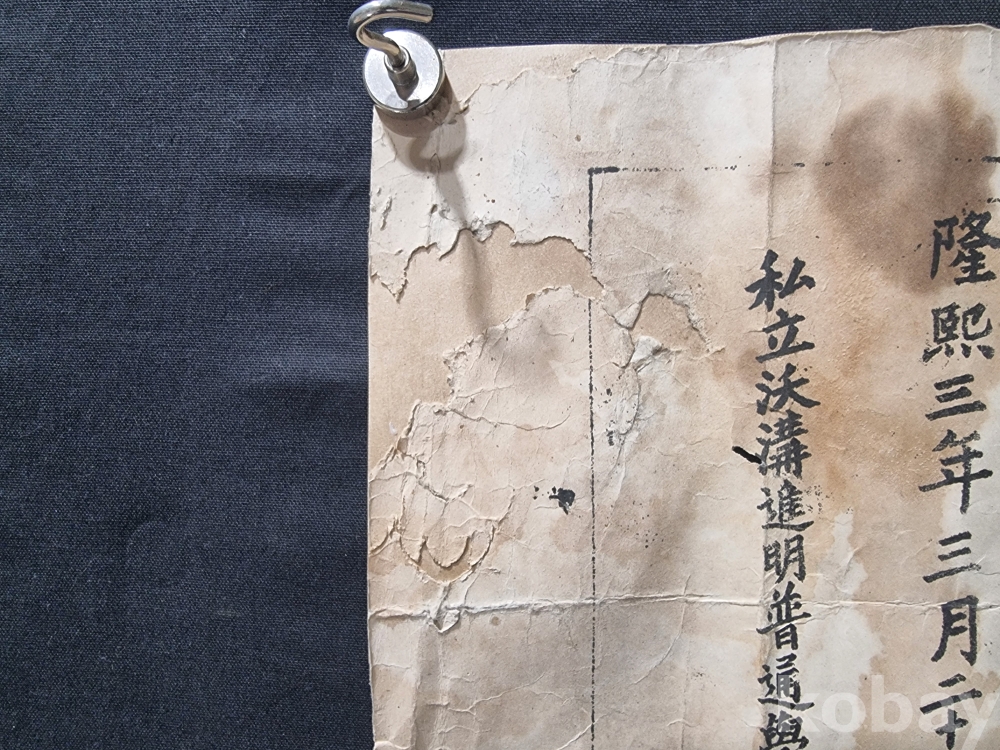 隆熙三年三月二十
私立沃溝進明普通學
kobay